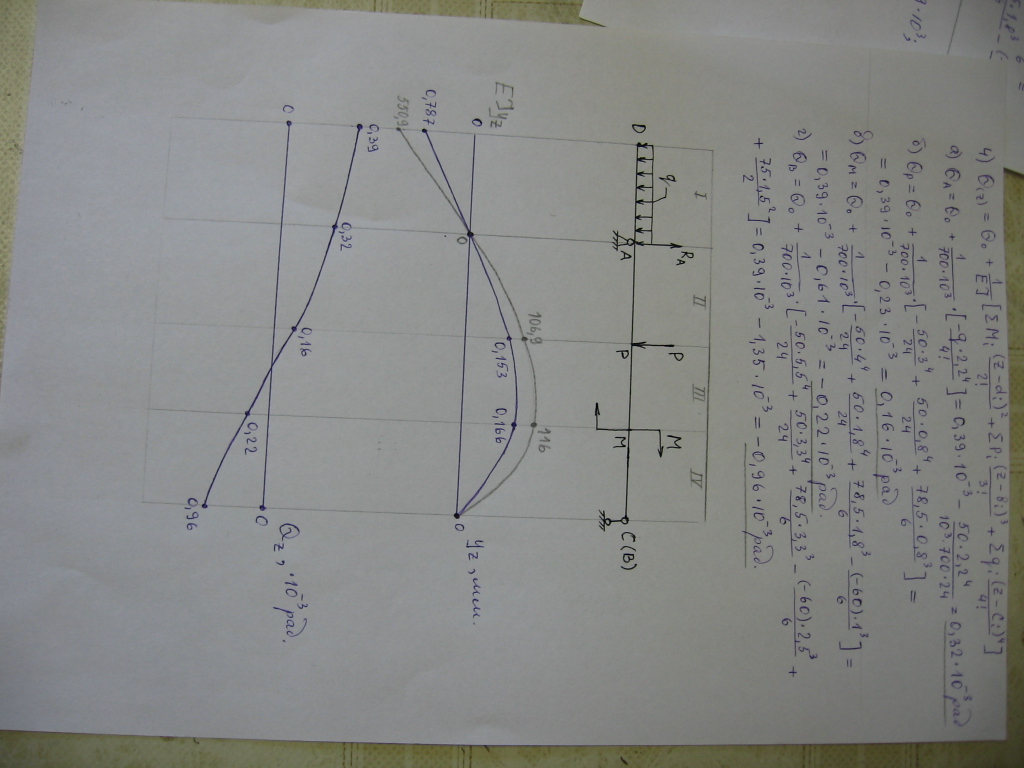 4) Θ(z) = Θ₀ + 1/EJ [ΣMᵢ (z-aᵢ)²/2! + ΣPᵢ (z-вᵢ)³/3! + Σqᵢ (z-cᵢ)⁴/4!]
а) Θ_A = Θ₀ + 1/700·10³ · [-q·2,2⁴/4!] = 0,39·10⁻³ - 50·2,2⁴/10³·700·24 = 0,32·10⁻³ рад
б) Θ_P = Θ₀ + 1/700·10³ · [-50·3⁴/24 + 50·0,8⁴/24 + 78,5·0,8³/6] =
= 0,39·10⁻³ - 0,23·10⁻³ = 0,16·10⁻³ рад
в) Θ_M = Θ₀ + 1/700·10³ [-50·4⁴/24 + 50·1,8⁴/24 + 78,5·1,8³/6 - (-60)·1³/6] =
= 0,39·10⁻³ - 0,61·10⁻³ = -0,22·10⁻³ рад.
г) Θ_B = Θ₀ + 1/700·10³ · [-50·5,5⁴/24 + 50·3,3⁴/24 + 78,5·3,3³/6 - (-60)·2,5³/6 +
+ 75·1,5²/2] = 0,39·10⁻³ - 1,35·10⁻³ = -0,96·10⁻³ рад.
I II III IV
q R_A P M
D A P M C(B)
EJy_z
0 0 0 y_z, мм.
106,9 116
0,153 0,166
0,787
550,9
0,39 0,32 0,16 0,22 0,96
0 0 Q_z, ·10⁻³ рад.